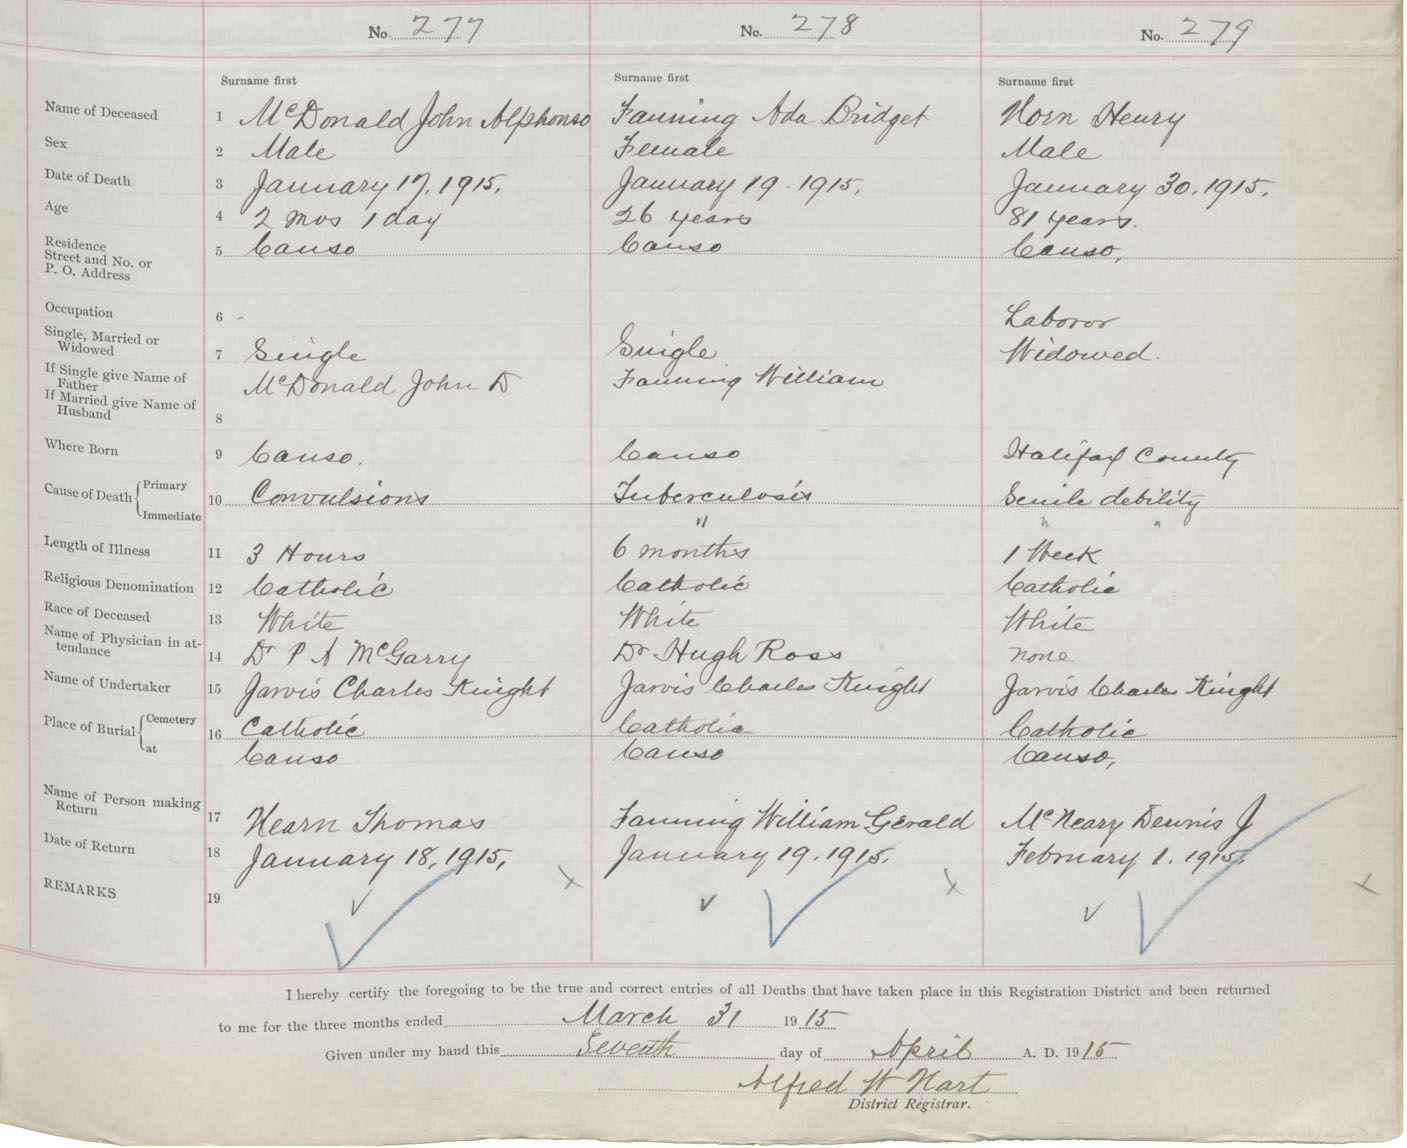 No. 277 No. 278 No. 279
Surname first Surname first Surname first
Name of Deceased 1 McDonald John Alphonso Fanning Ada Bridget Horn Henry
Sex 2 Male Female Male
Date of Death 3 January 17, 1915, January 19. 1915, January 30. 1915.
Age 4 2 mos 1 day 26 years 81 years.
Residence
Street and No. or
P. O. Address 5 Canso Canso Canso,
Occupation 6 - Laboror
Single, Married or
Widowed 7 Single Single Widowed.
If Single give Name of
Father McDonald John D Fanning William
If Married give Name of
Husband 8
Where Born 9 Canso. Canso Halifax County
Cause of Death Primary 10 Convulsions Tuberculosis Senile debility
Immediate " " "
Length of Illness 11 3 Hours 6 months 1 Week
Religious Denomination 12 Catholic Catholic Catholic
Race of Deceased 13 White White White
Name of Physician in at-
tendance 14 Dr P A McGarry Dr Hugh Ross none
Name of Undertaker 15 Jarvis Charles Knight Jarvis Charles Knight Jarvis Charles Knight
Place of Burial Cemetery 16 Catholic Catholic Catholic
at Canso Canso Canso,
Name of Person making
Return 17 Hearn Thomas Fanning William Gerald McNeary Dennis J
Date of Return 18 January 18, 1915, January 19. 1915. February 1. 1915.
REMARKS 19
I hereby certify the foregoing to be the true and correct entries of all Deaths that have taken place in this Registration District and been returned
to me for the three months ended March 31 1915
Given under my hand this Seventh day of April A. D. 1915
Alfred W Hart
District Registrar.